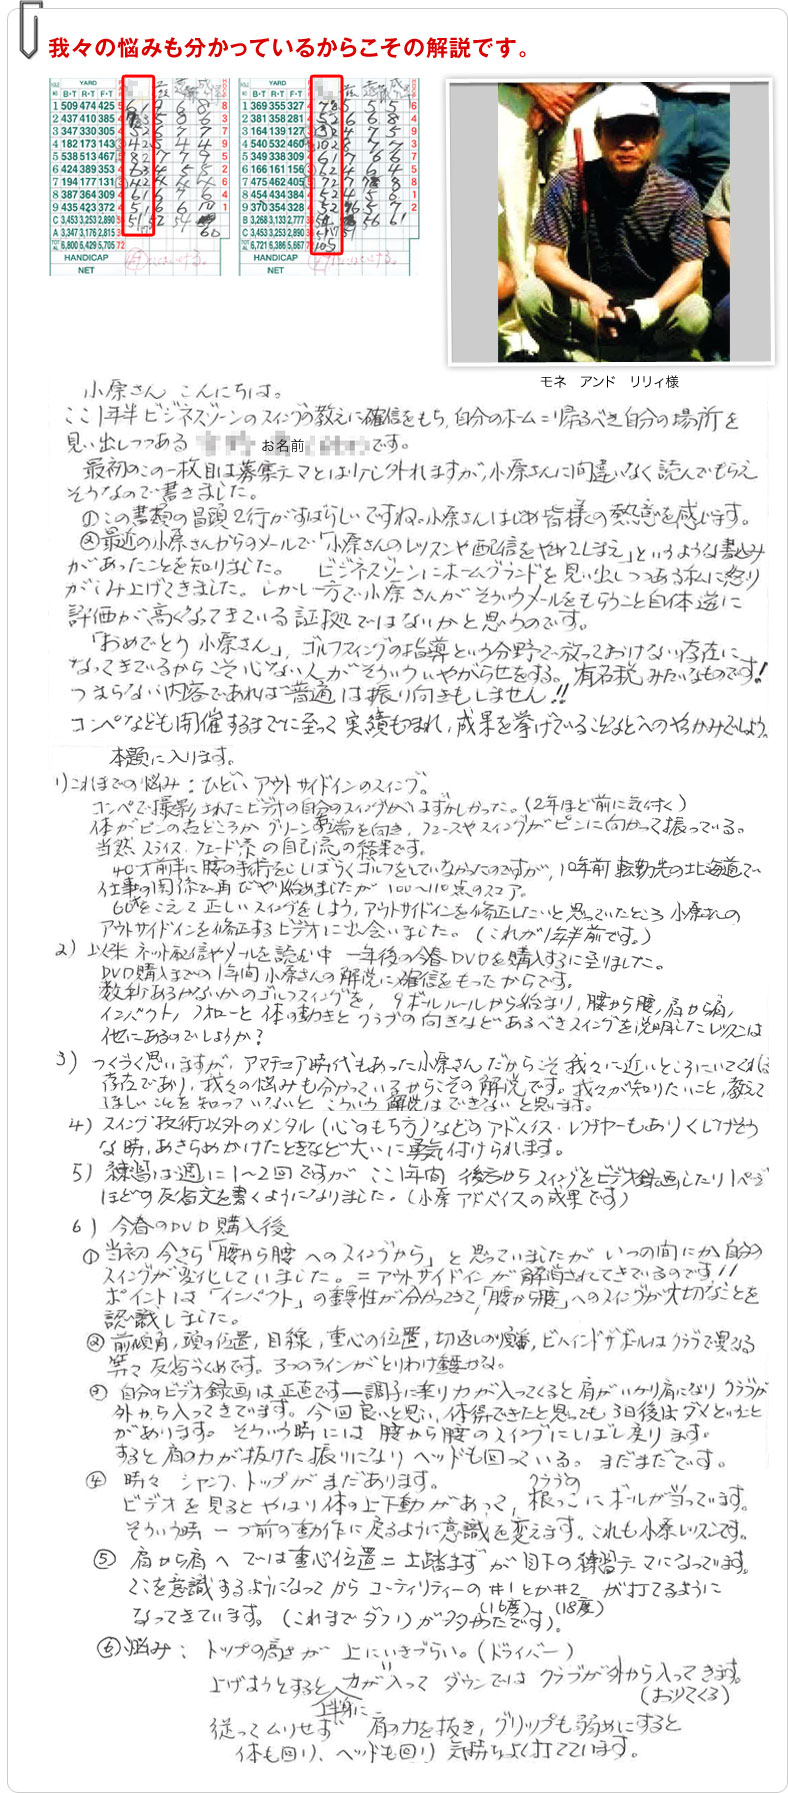 我々の悩みも分かっているからこその解説です。
YARD
HOLE B・T R・T F・T
1 509 474 425
2 437 410 385
3 347 330 305
4 182 173 143
5 538 513 467
6 424 389 353
7 194 177 131
8 387 364 309
9 435 423 372
C 3,453 3,253 2,890
A 3,347 3,176 2,815
TOTAL 6,800 6,429 5,705 72
HANDICAP
NET
YARD
HOLE B・T R・T F・T
1 369 355 327
2 381 358 281
3 164 139 127
4 540 532 460
5 349 338 309
6 166 161 156
7 475 462 405
8 454 434 384
9 370 354 328
B 3,268 3,133 2,777
C 3,453 3,253 2,890
TOTAL 6,721 6,386 5,667 72
HANDICAP
NET
モネ アンド リリィ様
小原さん こんにちは。
ここ1年半ビジネスゾーンのスイングの教えに確信をもち、自分のホーム=帰るべき自分の場所を
見い出しつつある お名前 です。
最初のこの一枚目は募集テーマとは少し外れますが、小原さんに間違いなく読んでもらえ
そうなので書きました。
①この書類の冒頭2行がすばらしいですね。小原さんはじめ皆様の熱意を感じます。
②最近の小原さんからのメールで「小原さんのレッスンや配信をやめてしまえ」というような書込み
があったことを知りました。 ビジネスゾーンにホームグランドを見い出しつつある私に怒り
がこみ上げてきました。しかし一方で小原さんがそういうメールをもらうこと自体逆に
評価が高くなってきている証拠ではないかと思うのです。
「おめでとう 小原さん」、ゴルフスイングの指導という分野で放っておけない存在に
なってきているからこそ心ない人がそういういやがらせをする。有名税みたいなものです!
つまらない内容であれば普通は振り向きもしません!!
コンペなども開催するまでに至って実績もうまれ、成果を挙げていることなどへのやっかみでしょう。
本題に入ります。
1)これまでの悩み:ひどいアウトサイドインのスイング。
コンペで撮影されたビデオの自分のスイングがはずかしかった。(2年ほど前に気付く)
体がピンの左どころかグリーン左端を向き、フェースやスイングがピンに向かって振っている。
当然スライス・フェード系の自己流の結果です。
40才前半に腰の手術をししばらくゴルフをしていなかったのですが、10年前転勤先の北海道で
仕事の関係で再びやり始めましたが100〜110点のスコア。
60才をこえて正しいスイングをしよう、アウトサイドインを修正したいと思っていたところ小原さんの
アウトサイドインを修正するビデオに出会いました。(これが1年半前です。)
2)以来ネット配信やメールを読む中 一年後の今春DVDを購入するに至りました。
DVD購入までの1年間小原さんの解説に確信をもったからです。
数札あるかないかのゴルフスイングを、9ボールルールから始まり、腰から腰、肩から肩、
インパクト、フォローと体の動きとクラブの向きなどあるべきスイングを説明したレッスンは
他にあるのでしょうか?
3)つくづく思いますが、アマチュア時代もあった小原さんだからこそ我々に近いところにいてくれる
存在であり、我々の悩みも分かっているからこその解説です。我々が知りたいこと、教えて
ほしいことを知っていないとこういう解説はできないと思います。
4)スイング技術以外のメンタル(心のもち方)などのアドバイス・レクチャーもありくじけそう
な時、あきらめかけたときなど大いに勇気付けられます。
5)練習は週に1〜2回ですが ここ1年間 後方からスイングをビデオ録画したり1ページ
ほどの反省文を書くようになりました。(小原アドバイスの成果です)
6)今春のDVD購入後
①当初今さら「腰から腰へのスイングから」と思っていましたがいつの間にか自分の
スイングが変化していました。=アウトサイドインが解消されてきているのです!!
ポイントは「インパクト」の重要性が分かってきて、「腰から腰」へのスイングが大切なことを
認識しました。
②前傾角、頭の位置、目線、重心の位置、切返しの順番、ビハインドザボールはクラブで異なる
等々反省づくめです。3つのラインがとりわけ重要かな。
③自分のビデオ録画は正直です―調子に乗り力が入ってくると肩がいかり肩になりクラブが
外から入ってきています。今回良いと思い、体得できたと思っても3日後はダメということ
があります。そういう時には腰から腰のスイングにしばし戻ります。
すると肩の力が抜けた振りになりヘッドも回っている。まだまだです。
④時々シャンク、トップがまだあります。
ビデオを見るとやはり体の上下動があって、クラブの根っこにボールが当っています。
そういう時一つ前の動作に戻るように意識を変えます。これも小原レッスンです。
⑤肩から肩へでは重心位置=土踏まずが目下の練習テーマになっています。
ここを意識するようになってからユーティリティーの#1とか#2が打てるように
(16度) (18度)
なってきています。(これまでダフリが多かったです)。
⑥悩み:トップの高さが上にいきづらい。(ドライバー)
上げようとすると上半身に力が入ってダウンではクラブが外から入ってきます。
(おりてくる)
従ってムリせず 肩の力を抜き、グリップも弱めにすると
体も回り、ヘッドも回り気持ちよく打てています。